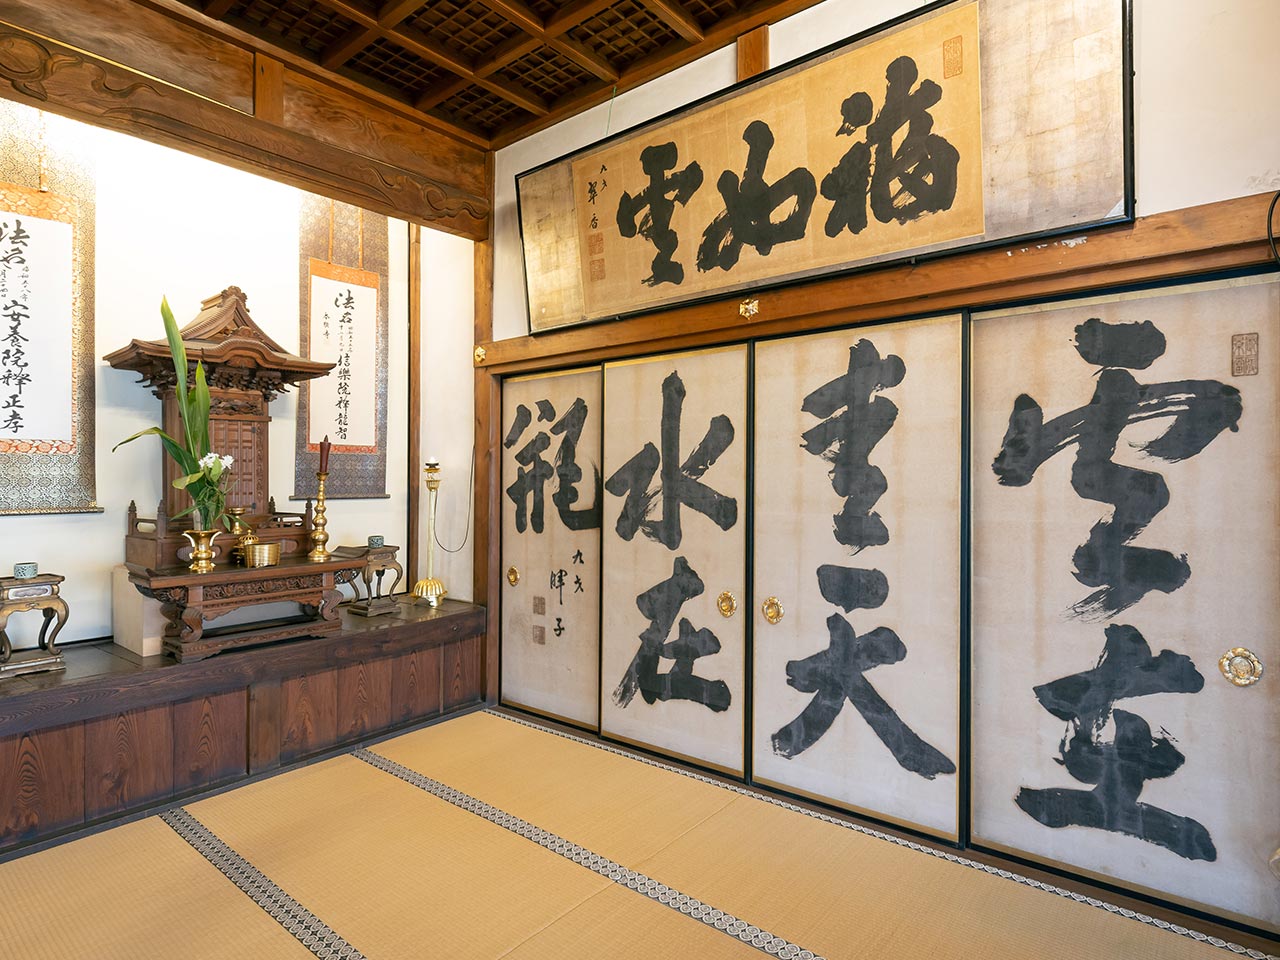 福如雲
九才
翠香
雲在
青天
水在
瓶
九才
暉子
法名
信樂院釋龍智
法名
安養院釋正孝